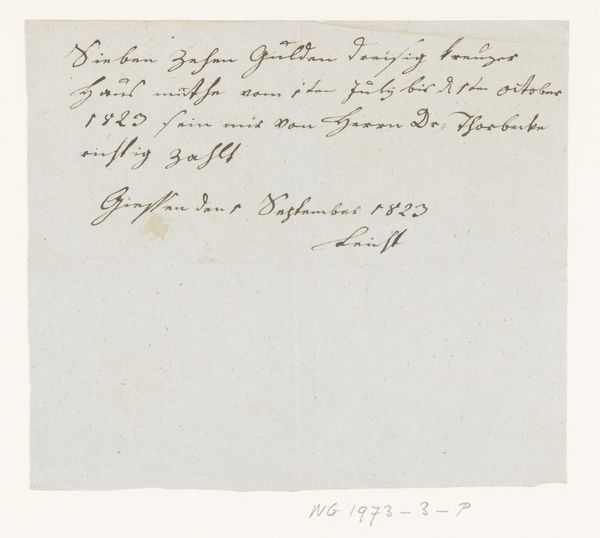 Sieben zehen Gulden dreisig kreuzer
Haus müthe vom 1ten July bis d 1ten October
1823 sein mir von Herrn Dr. Thorbecke
richtig zahlt
Giessen den 1 September 1823
Leicht
NG 1973-3-P